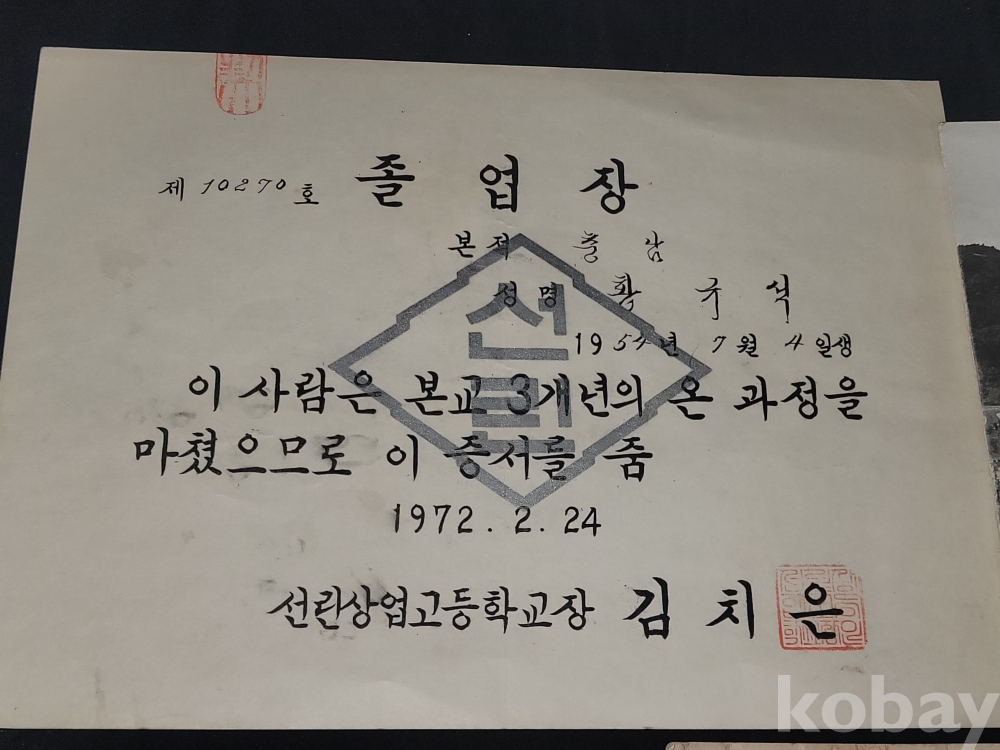 제 10270 호 졸 업 장
본적 충 남
성명 황 규 식
1954년 7월 4일생
이 사람은 본교 3개년의 온 과정을
마쳤으므로 이 증서를 줌
1972. 2. 24
선린상업고등학교장 김 치 은
선린
kobay